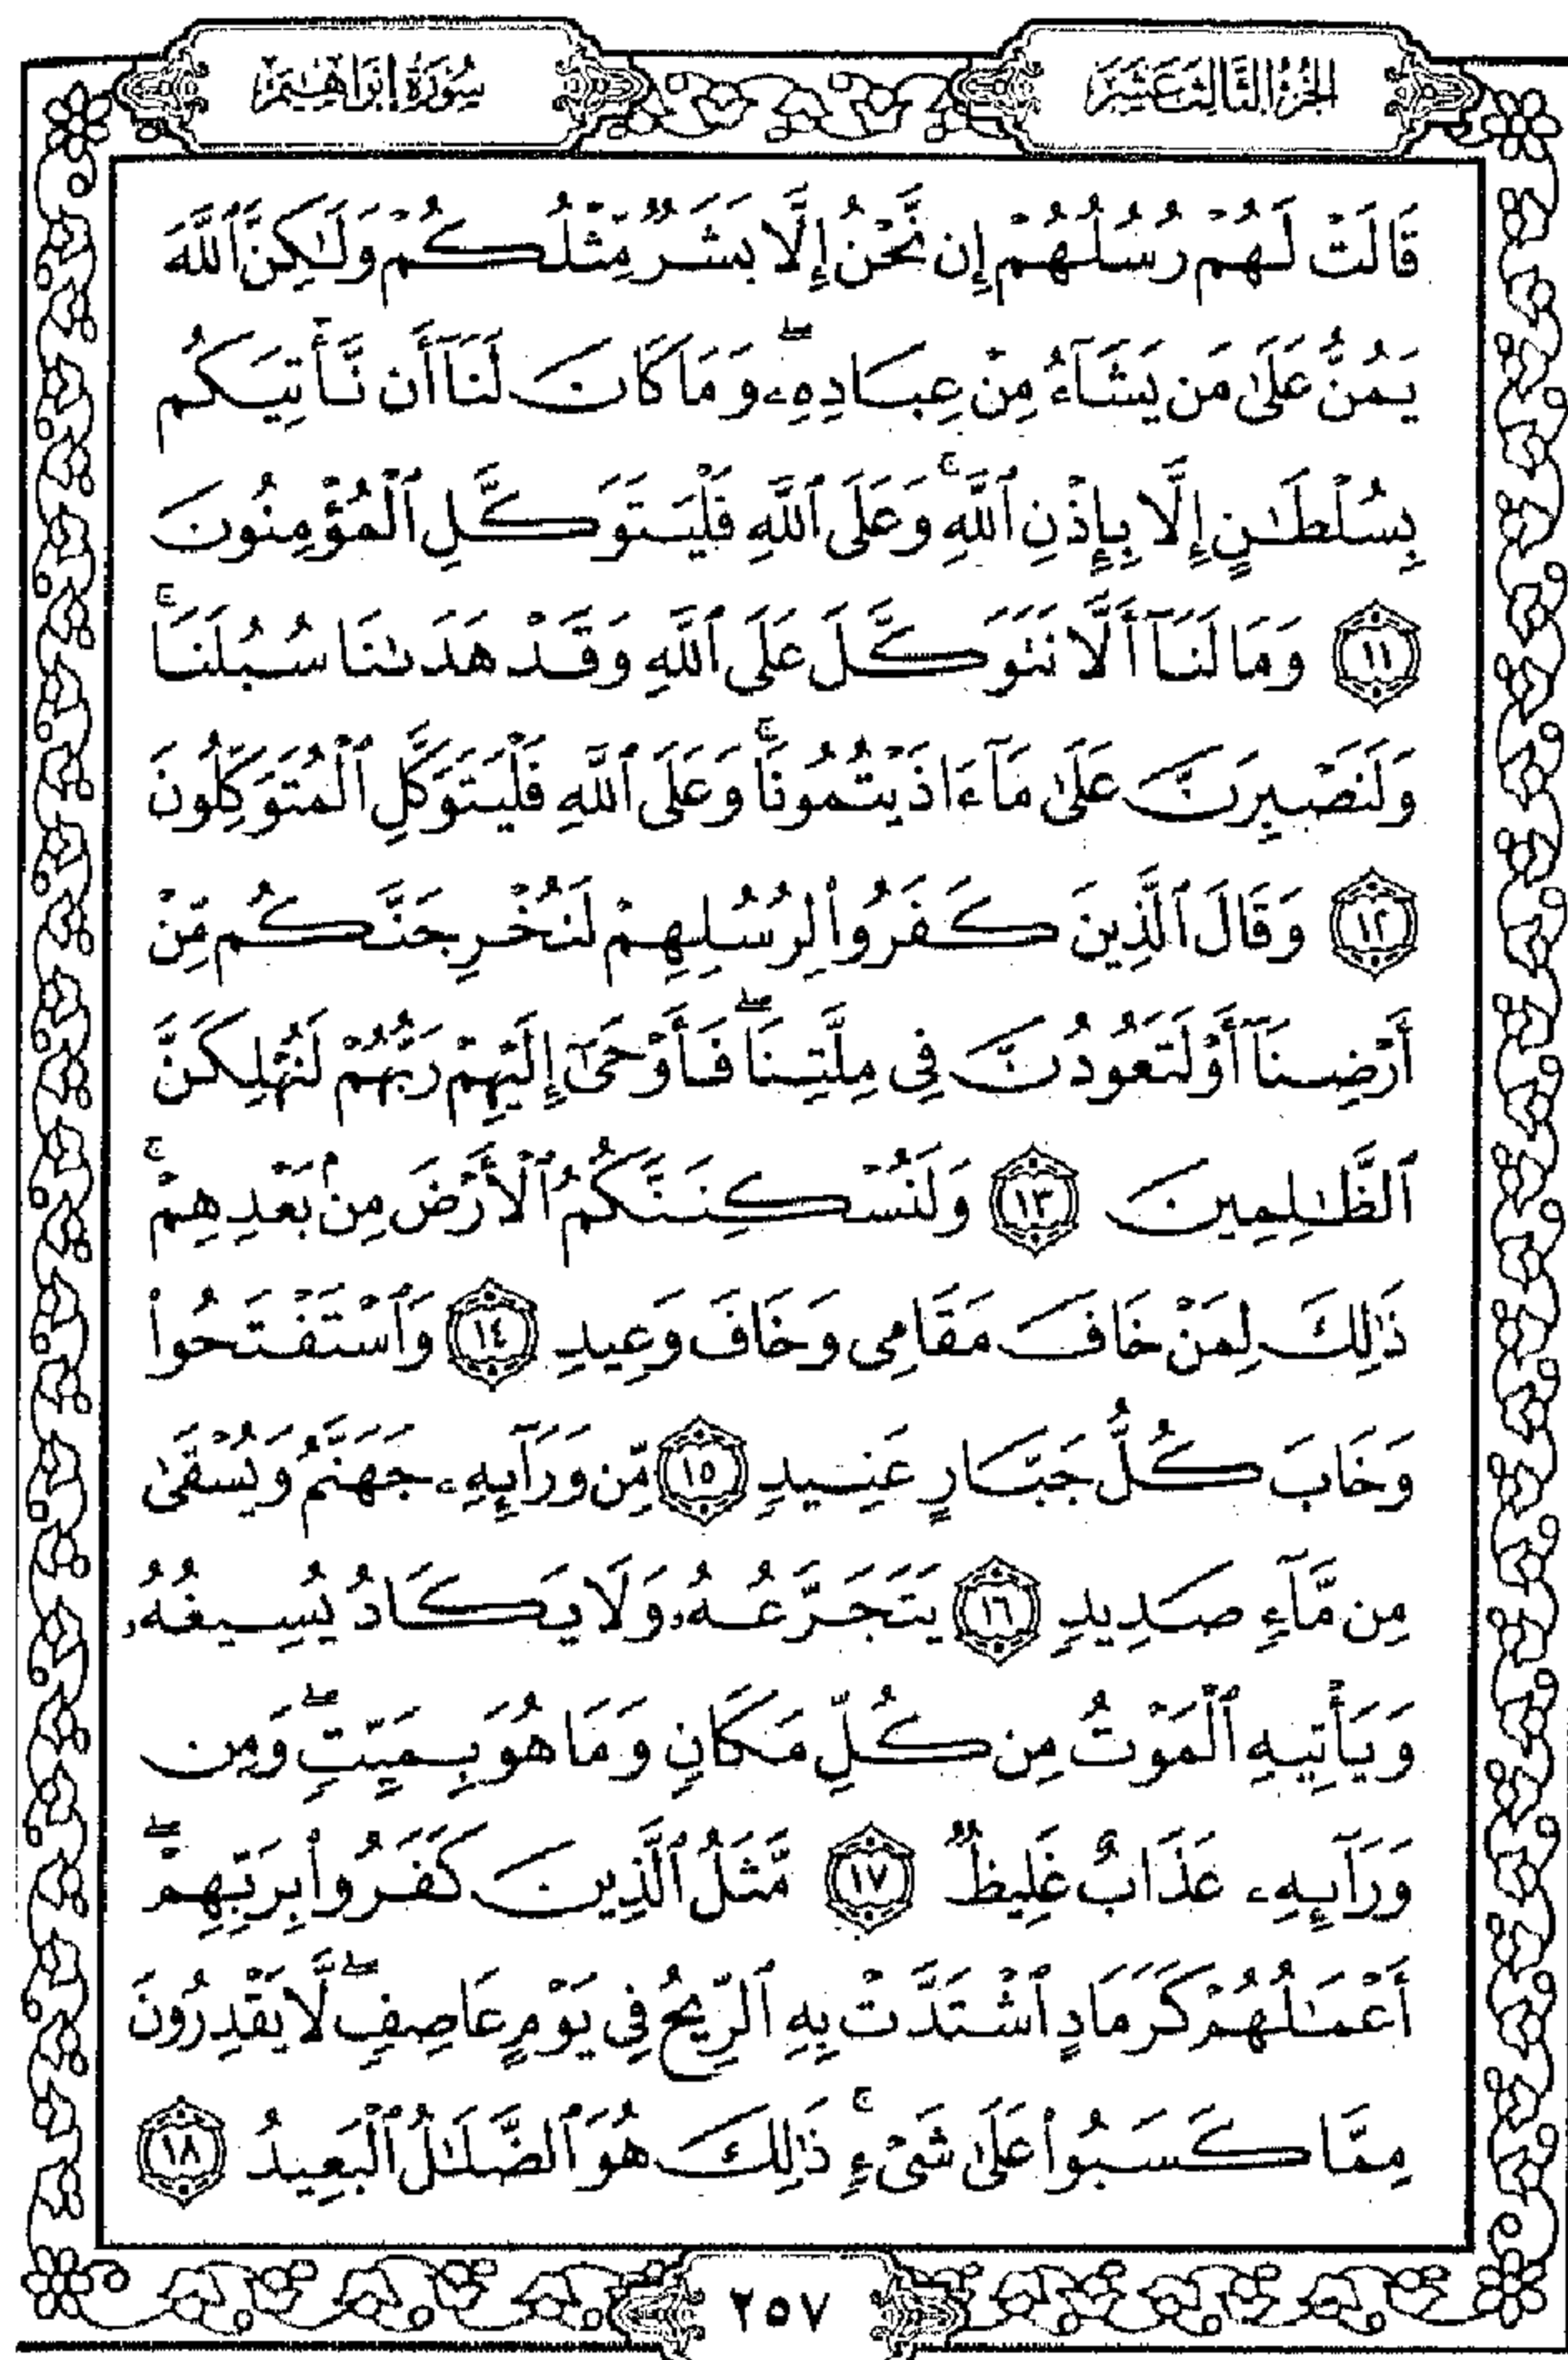 الجزء الثالث عشر
سورة إبراهيم
قَالَتْ لَهُمْ رُسُلُهُمْ إِن نَّحْنُ إِلَّا بَشَرٌ مِّثْلُكُمْ وَلَٰكِنَّ ٱللَّهَ
يَمُنُّ عَلَىٰ مَن يَشَآءُ مِنْ عِبَادِهِۦۖ وَمَا كَانَ لَنَآ أَن نَّأْتِيَكُم
بِسُلْطَٰنٍ إِلَّا بِإِذْنِ ٱللَّهِۚ وَعَلَى ٱللَّهِ فَلْيَتَوَكَّلِ ٱلْمُؤْمِنُونَ
١١ وَمَا لَنَآ أَلَّا نَتَوَكَّلَ عَلَى ٱللَّهِ وَقَدْ هَدَىٰنَا سُبُلَنَاۚ
وَلَنَصْبِرَنَّ عَلَىٰ مَآ ءَاذَيْتُمُونَاۚ وَعَلَى ٱللَّهِ فَلْيَتَوَكَّلِ ٱلْمُتَوَكِّلُونَ
١٢ وَقَالَ ٱلَّذِينَ كَفَرُوا۟ لِرُسُلِهِمْ لَنُخْرِجَنَّكُم مِّنْ
أَرْضِنَآ أَوْ لَتَعُودُنَّ فِى مِلَّتِنَاۖ فَأَوْحَىٰٓ إِلَيْهِمْ رَبُّهُمْ لَنُهْلِكَنَّ
ٱلظَّٰلِمِينَ ١٣ وَلَنُسْكِنَنَّكُمُ ٱلْأَرْضَ مِنۢ بَعْدِهِمْۚ
ذَٰلِكَ لِمَنْ خَافَ مَقَامِى وَخَافَ وَعِيدِ ١٤ وَٱسْتَفْتَحُوا۟
وَخَابَ كُلُّ جَبَّارٍ عَنِيدٍ ١٥ مِّن وَرَآئِهِۦ جَهَنَّمُ وَيُسْقَىٰ
مِن مَّآءٍ صَدِيدٍ ١٦ يَتَجَرَّعُهُۥ وَلَا يَكَادُ يُسِيغُهُۥ
وَيَأْتِيهِ ٱلْمَوْتُ مِن كُلِّ مَكَانٍ وَمَا هُوَ بِمَيِّتٍۖ وَمِن
وَرَآئِهِۦ عَذَابٌ غَلِيظٌ ١٧ مَّثَلُ ٱلَّذِينَ كَفَرُوا۟ بِرَبِّهِمْۖ
أَعْمَٰلُهُمْ كَرَمَادٍ ٱشْتَدَّتْ بِهِ ٱلرِّيحُ فِى يَوْمٍ عَاصِفٍۖ لَّا يَقْدِرُونَ
مِمَّا كَسَبُوا۟ عَلَىٰ شَىْءٍۚ ذَٰلِكَ هُوَ ٱلضَّلَٰلُ ٱلْبَعِيدُ ١٨
٢٥٧